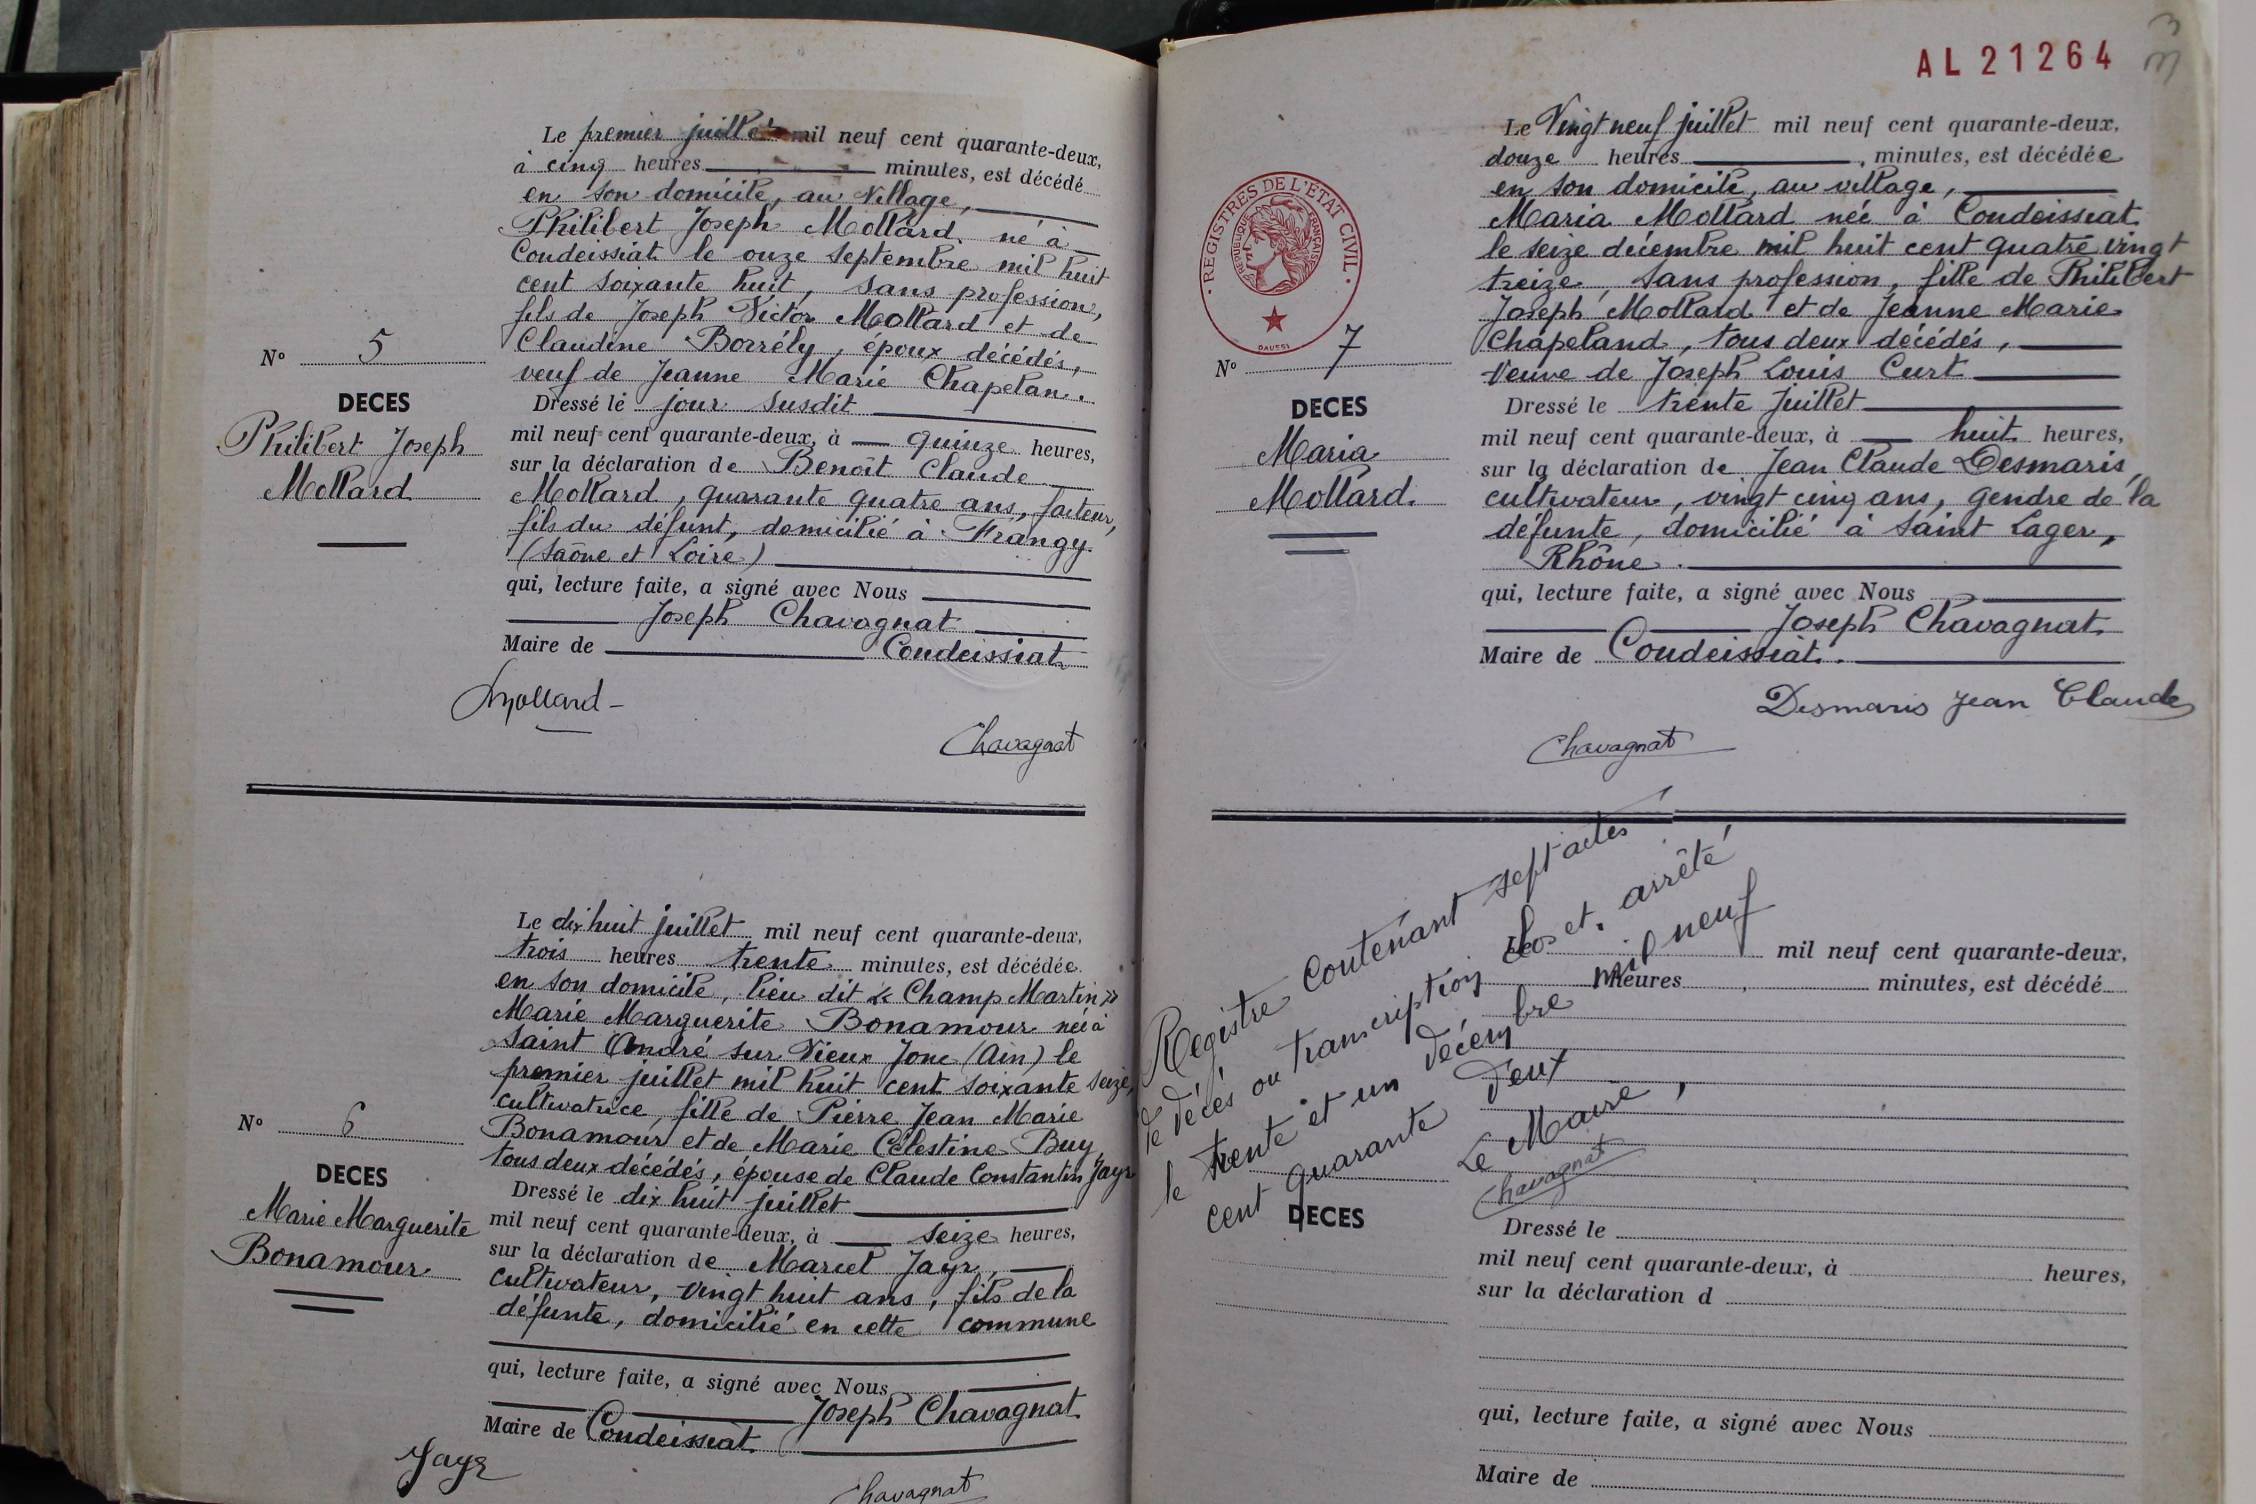 Le premier juillet mil neuf cent quarante-deux,
à cinq heures minutes, est décédé
en son domicile, au village,
Philibert Joseph Mollard né à
Condeissiat le onze septembre mil huit
cent soixante huit, sans profession,
fils de Joseph Victor Mollard et de
Claudine Borrély, époux décédés,
veuf de Jeanne Marie Chapelan.
Dressé le jour susdit
mil neuf cent quarante-deux, à quinze heures,
sur la déclaration de Benoît Claude
Mollard, quarante quatre ans, facteur,
fils du défunt, domicilié à Frangy.
(Saône et Loire)
qui, lecture faite, a signé avec Nous
Joseph Chavagnat
Maire de Condeissiat
Mollard
Chavagnat
N° 5
DECES
Philibert Joseph
Mollard
Le dix huit juillet mil neuf cent quarante-deux,
trois heures trente minutes, est décédée
en son domicile, lieu dit « Champ Martin »
Marie Marguerite Bonamour née à
Saint André sur Vieux Jonc (Ain) le
premier juillet mil huit cent soixante seize,
cultivatrice, fille de Pierre Jean Marie
Bonamour et de Marie Célestine Buy,
tous deux décédés, épouse de Claude Constantin Jayr
Dressé le dix huit juillet
mil neuf cent quarante-deux, à seize heures,
sur la déclaration de Marcel Jayr,
cultivateur, vingt huit ans, fils de la
défunte, domicilié en cette commune
qui, lecture faite, a signé avec Nous
Joseph Chavagnat
Maire de Condeissiat
Jayr
Chavagnat
N° 6
DECES
Marie Marguerite
Bonamour
AL 21264
33
Le Vingt neuf juillet mil neuf cent quarante-deux,
douze heures, minutes, est décédée
en son domicile, au village,
Maria Mollard née à Condeissiat
le seize décembre mil huit cent quatre vingt
treize, sans profession, fille de Philibert
Joseph Mollard et de Jeanne Marie
Chapeland, tous deux décédés,
veuve de Joseph Louis Curt
Dressé le trente juillet
mil neuf cent quarante-deux, à huit heures,
sur la déclaration de Jean Claude Desmaris,
cultivateur, vingt cinq ans, gendre de la
défunte, domicilié à Saint Lager,
Rhône.
qui, lecture faite, a signé avec Nous
Joseph Chavagnat
Maire de Condeissiat.
Desmaris Jean Claude
Chavagnat
REGISTRES DE L'ÉTAT CIVIL
RÉPUBLIQUE FRANÇAISE
DAUSSI
N° 7
DECES
Maria
Mollard.
Registre contenant sept actes
de décès ou transcription clos et arrêté
le trente et un décembre mil neuf
cent quarante deux
Le Maire,
Chavagnat
Le mil neuf cent quarante-deux,
heures minutes, est décédé
DECES
Dressé le
mil neuf cent quarante-deux, à heures,
sur la déclaration d
qui, lecture faite, a signé avec Nous
Maire de